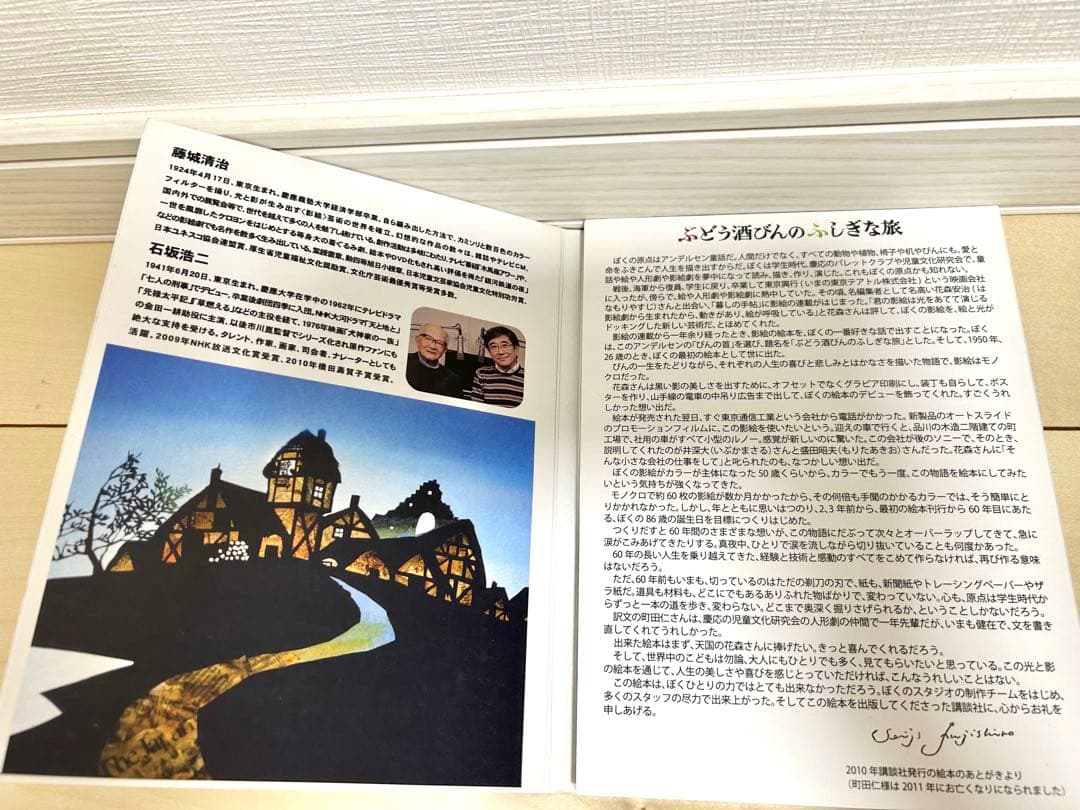 藤城清治
1924年4月17日、東京生まれ。慶應義塾大学経済学部卒業。自ら編み出した方法で、カミソリと数百色のカラー
フィルターを操り、光と影が生み出す〈影絵〉芸術の世界を確立。幻想的な作品の数々は、雑誌やテレビCM、
国内外での展覧会等で、世代を越えて多くの人を魅了し続けている。創作活動は多岐にわたり、テレビ番組「木馬座アワー」や、
一世を風靡したケロヨンをはじめとする等身大の着ぐるみ劇、絵本やDVD化もされ高い評価を得た「銀河鉄道の夜」
などの影絵劇でも名作を数多く生み出している。紫綬褒章、勲四等旭日小綬章、日本児童文芸家協会児童文化特別功労賞、
日本ユネスコ協会連盟賞、厚生省児童福祉文化奨励賞、文化庁芸術祭優秀賞等受賞多数。
石坂浩二
1941年6月20日、東京生まれ。慶應大学在学中の1962年にテレビドラマ
「七人の刑事」でデビュー、卒業後劇団四季に入団。NHK大河ドラマ「天と地と」
「元禄太平記」「草燃える」などの主役を経て、1976年映画「犬神家の一族」
の金田一耕助役に主演。以後市川崑監督でシリーズ化され原作ファンにも
絶大な支持を受ける。タレント、作家、画家、司会者、ナレーターとしても
活躍。2009年NHK放送文化賞受賞、2010年橋田壽賀子賞受賞。
ぶどう酒びんのふしぎな旅
ぼくの原点はアンデルセン童話だ。人間だけでなく、すべての動物や植物、椅子や机やびんにも。愛と
命をふきこんで人生を描き出すからだ。ぼくは学生時代、慶応のパレットクラブや児童文化研究会で、童
話や絵や人形劇や影絵劇を夢中になって読み、描き、作り、演じた。これもぼくの原点かも知れない。
戦後、海軍から復員、学生に戻り、卒業して東京興行（いまの東京テアトル株式会社）という映画会社
に入ったが、傍らで、絵や人形劇や影絵劇に熱中していた。その頃、名編集者として名高い花森安治（は
なもりやすじ）さんと出会い、「暮しの手帖」に影絵の連載がはじまった。「君の影絵は光をあてて演じる
影絵劇から生まれたから、動きがあり、絵が呼吸している」と花森さんは評して、ぼくの影絵を、絵と光が
ドッキングした新しい芸術だ、とほめてくれた。
影絵の連載から一年余り経ったとき、影絵の絵本を、ぼくの一番好きな話で出すことになった。ぼく
は、このアンデルセンの「びんの首」を選び、題名を「ぶどう酒びんのふしぎな旅」とした。そして、1950年、
26歳のとき、ぼくの最初の絵本として世に出た。
びんの一生をたどりながら、それぞれの人生の喜びと悲しみとはかなさを描いた物語で、影絵はモノ
クロだった。
花森さんは黒い影の美しさを出すために、オフセットでなくグラビア印刷にし、装丁も自らして、ポス
ターを作り、山手線の電車の中吊り広告まで出して、ぼくの絵本のデビューを飾ってくれた。すごくうれ
しかった想い出だ。
絵本が発売された翌日、すぐ東京通信工業という会社から電話がかかった。新製品のオートスライド
のプロモーションフィルムに、この影絵を使いたいという。迎えの車で行くと、品川の木造二階建ての町
工場で、社用の車がすべて小型のルノー。感覚が新しいのに驚いた。この会社が後のソニーで、そのとき、
説明してくれたのが井深大（いぶかまさる）さんと盛田昭夫（もりたあきお）さんだった。花森さんに「そ
んな小さな会社の仕事をして」と叱られたのも、なつかしい想い出だ。
ぼくの影絵がカラーが主体になった50歳くらいから、カラーでもう一度、この物語を絵本にしてみた
いという気持ちが強くなってきた。
モノクロで約60枚の影絵が数か月かかったから、その何倍も手間のかかるカラーでは、そう簡単にと
りかかれなかった。しかし、年とともに思いはつのり、2、3年前から、最初の絵本刊行から60年目にあた
る、ぼくの86歳の誕生日を目標につくりはじめた。
つくりだすと60年間のさまざまな想いが、この物語にだぶって次々とオーバーラップしてきて、急に
涙がこみあげてきたりする。真夜中、ひとりで涙を流しながら切り抜いていることも何度かあった。
60年の長い人生を乗り越えてきた、経験と技術と感動のすべてをこめて作らなければ、再び作る意味
はないだろう。
ただ、60年前もいまも、切っているのはただの剃刀の刃で、紙も、新聞紙やトレーシングペーパーやザ
ラ紙だ。道具も材料も、どこにでもあるありふれた物ばかりで、変わっていない。心も、原点は学生時代か
らずっと一本の道を歩き、変わらない。どこまで奥深く掘りさげられるか、ということしかないだろう。
訳文の町田仁さんは、慶応の児童文化研究会の人形劇の仲間で一年先輩だが、いまも健在で、文を書き
直してくれてうれしかった。
出来た絵本はまず、天国の花森さんに捧げたい。きっと喜んでくれるだろう。
そして、世界中のこどもは勿論、大人にもひとりでも多く、見てもらいたいと思っている。この光と影
の絵本を通じて、人生の美しさや喜びを感じとっていただければ、こんなうれしいことはない。
この絵本は、ぼくひとりの力ではとても出来なかっただろう。ぼくのスタジオの制作チームをはじめ、
多くのスタッフの尽力で出来上がった。そしてこの絵本を出版してくださった講談社に、心からお礼を
申しあげる。
Seiji Fujishiro
2010年講談社発行の絵本のあとがきより
（町田仁様は2011年にお亡くなりになられました）